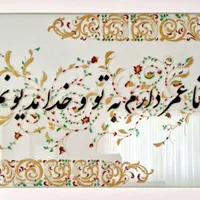 تا عمر دارم به تو و خدا مدیونم